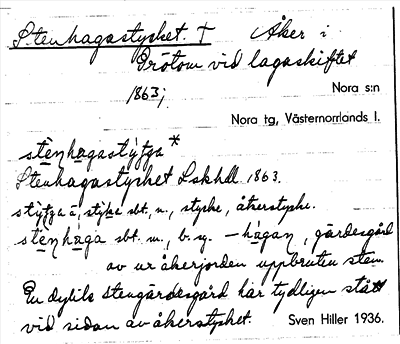 Stenhagastycket. † Åker i
Grötom vid lagaskiftet
1863;
Nora s:n
Nora tg, Västernorrlands l.
stẹnhạgastýʈʂa *
Stenhagastycket Lskhdl 1863.
sbt. n., stycke, åkerstycke.
sbt. m., b. sg. – hágan, gärdesgård
av ur åkerjorden uppbruten sten.
En dylik stengärdesgård har tydligen stått
vid sidan av åkerstycket. Sven Hiller 1936.